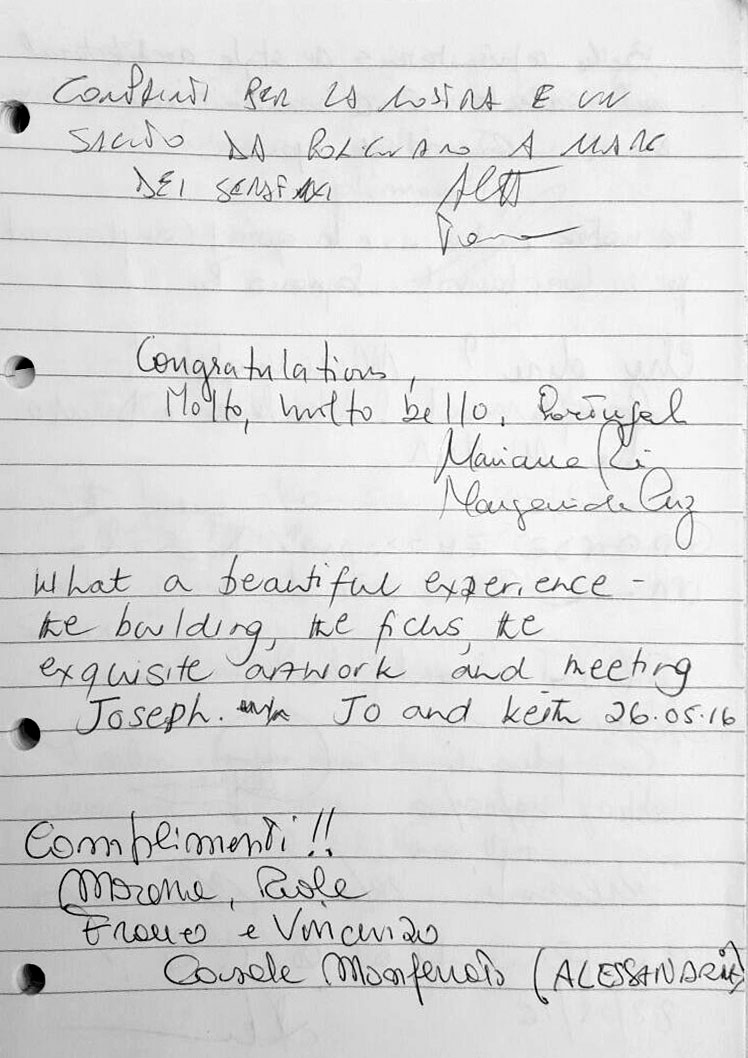 COMPLIMENTI PER LA MOSTRA E UN
SALUTO DA POLIGNANO A MARE
DEI SERAFINI
Congratulations,
Molto, molto bello. Portugal
Mariana
Margarida Cruz
What a beautiful experience -
the building, the ficus, the
exquisite artwork and meeting
Joseph. Jo and Keith 26.05.16
Complimenti!!
Morena, Paola
Franco e Vincenzo
Casale Monferrato (ALESSANDRIA)